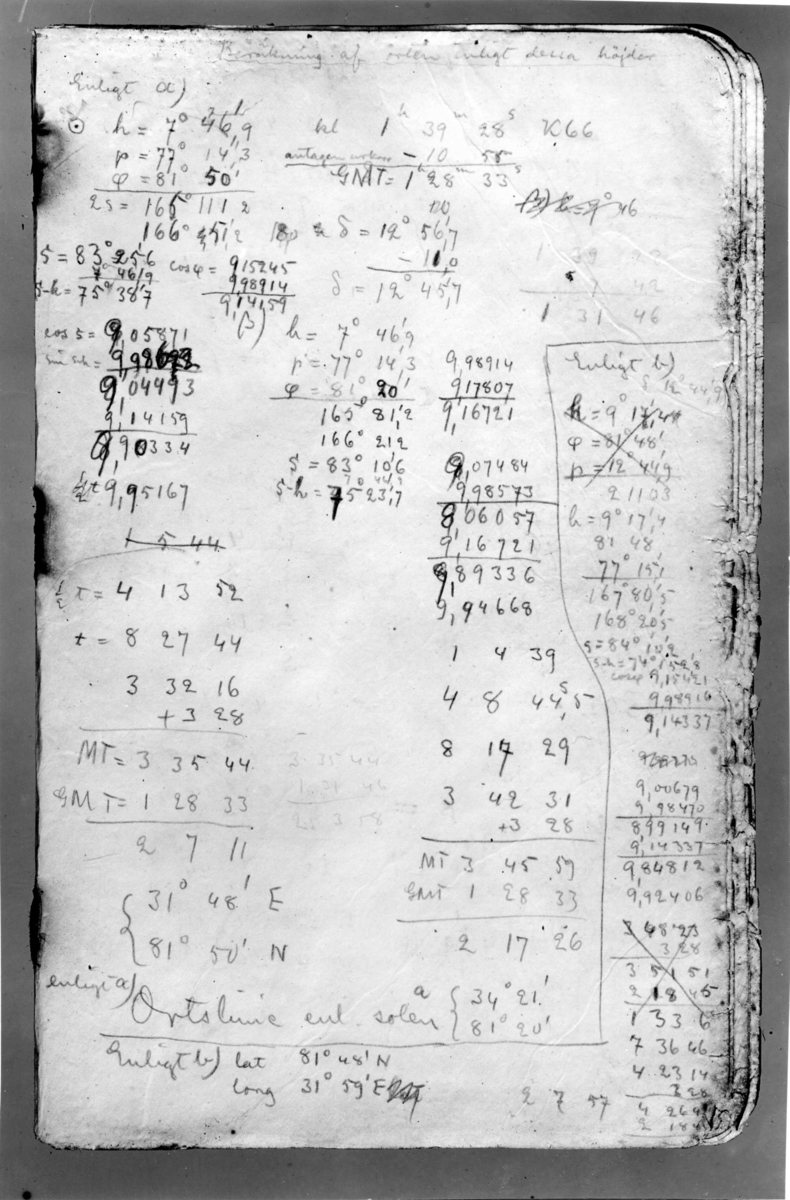 Beräkning af orten enligt dessa höjder
Enligt a)
h = 7° 46',9
p = 77° 14',3
φ = 81° 50'
2s = 165° 111',2
166° 51',2
s = 83° 25',6
7° 46',9
s-h = 75° 38',7
kl 1h 39m 28s K66
- 10 55
GMT = 1h 28m 33s
δ = 12° 56',7
- 11,0
δ = 12° 45',7
cos φ = 9,15245
9,98914
9,14159
cos s = 9,05871
sin s-h =
9,04493
9,14159
8,90334
½t 9,95167
1 5 44
½ t = 4 13 52
t = 8 27 44
3 32 16
+3 28
MT = 3 35 44
GMT = 1 28 33
2 7 11
31° 48' E
81° 50' N
β)
h = 7° 46',9
p = 77° 14',3
φ = 81° 20'
165° 81',2
166° 21,2
s = 83° 10'6
s-h = 75° 23',7
9,98914
9,17807
9,16721
9,07484
9,98573
9,06057
9,16721
9,89336
9,94668
1 4 39
4 8 44,5
8 17 29
3 42 31
+3 28
MT 3 45 59
GMT 1 28 33
2 17 26
1 39 22
7 42
1 31 46
3 35 44
1 31 46
Enligt b)
δ 12° 44',9
h = 9° 17',4
φ = 81° 48'
p = 12° 44',9
2 1103
h = 9° 17',4
81 48'
77° 15',1
167° 80',5
168° 20',5
s = 84° 10',2
s-h = 74° 152,8
cos φ 9,15421
9,98916
9,14337
9,00679
9,98470
8 99149
9,14337
9,84812
9,92406
3 48 23
3 28
3 51 51
2 18 45
1 33 6
7 36 46
4 23 14
3 28
4 26
2 18
enligt a)
Ortslinie enl. solen a
34° 21'
81° 20'
Enligt b) lat 81° 48' N
long 31° 59' E
2 7 57